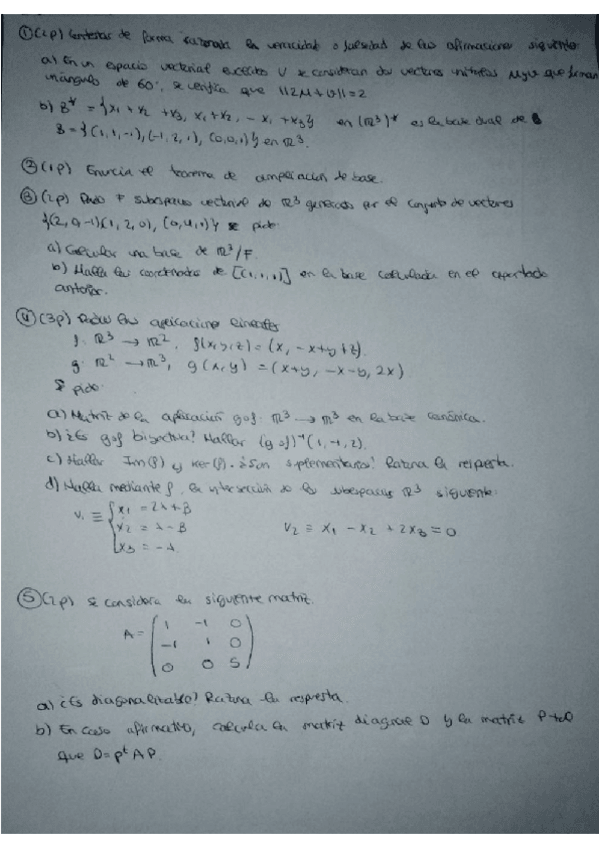 ① (2p) Contestar de forma razonada la veracidad o falsedad de las afirmaciones siguientes
a) En un espacio vectorial euclídeo V se consideran dos vectores unitarios u y v que forman
un ángulo de 60°, se verifica que ||2u + v|| = 2
b) B* = {x1 + x2 + x3, x1 + x2, - x1 + x3} en (R³)* es la base dual de
B = {(1, 1, -1), (-1, 2, 1), (0, 0, 1)} en R³.
② (1p) Enuncia el teorema de ampliación de base.
③ (2p) F subespacio vectorial de R³ generado por el conjunto de vectores
se pide:
a) Calcular una base de R³/F
b) Halla las coordenadas de [(1, 1, 1)] en la base calculada en el apartado
anterior.
④ (3p) Dadas las aplicaciones lineales
f: R³ → R², f(x, y, z) = (x, -x+y+z).
g: R² → R³, g(x, y) = (x+y, -x-y, 2x)
Se pide:
a) Matriz de la aplicación gof: R³ → R³ en la base canónica.
b) ¿Es gof biyectiva? Hallar (gof)⁻¹(1, -1, 2).
c) Hallar Im(f) y ker(f). ¿Son suplementarios? Razona la respuesta.
d) Halla mediante f, la intersección de los subespacios R³ siguiente:
V1 ≡ { x1 = 2λ + β
x2 = λ - β
x3 = -λ
V2 ≡ x1 - x2 + 2x3 = 0
⑤ (2p) se considera la siguiente matriz.
A = ( 1 -1 0
-1 1 0
0 0 5 )
a) ¿Es diagonalizable? Razona la respuesta.
b) En caso afirmativo, calcula la matriz diagonal D y la matriz P
que D = Pᵗ A P.